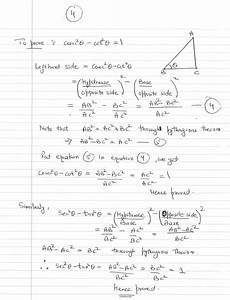 4
To prove : cosec²θ - cot²θ = 1
A
B
θ
C
Left hand side = cosec²θ - cot²θ
= (Hypotenuse / opposite side)² - (Base / opposite side)²
= AB²/AC² - BC²/AC² = AB² - BC² / AC² — 4
Note that AB² = AC² + BC² through pythagoras theorem
⇒ AB² - BC² = AC² — 5
Put equation 5 in equation 4, we get
cosec²θ - cot²θ = AB² - BC² / AC² = AC²/AC² = 1
Hence proved.
Similarly, sec²θ - tan²θ = (Hypotenuse / Base)² - (Opposite side / Base)²
= AB²/BC² - AC²/BC² = AB² - AC² / BC²
AB² - AC² = BC² through pythagoras theorem
∴ sec²θ - tan²θ = AB² - AC² / BC² = BC²/BC² = 1
Hence proved.